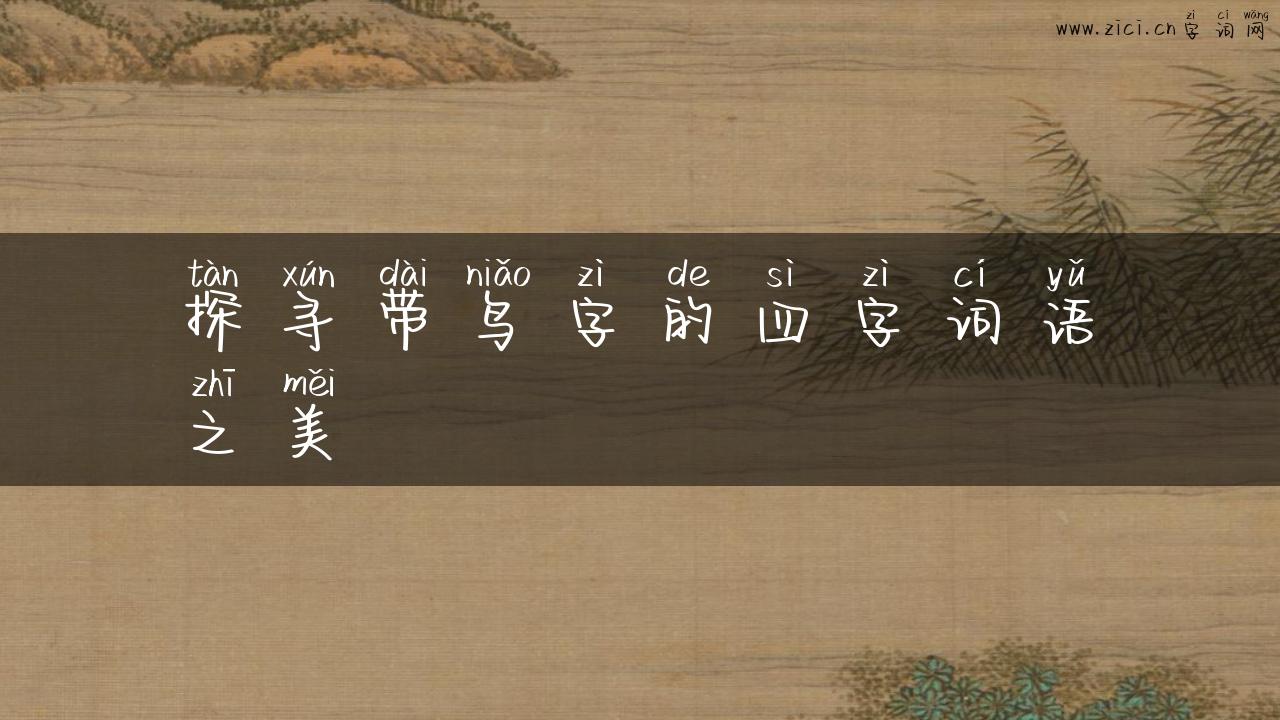 zì cí wǎng
www.zici.cn 字词网
tàn xún dài niǎo zì de sì zì cí yǔ
探寻带鸟字的四字词语
zhī měi
之美